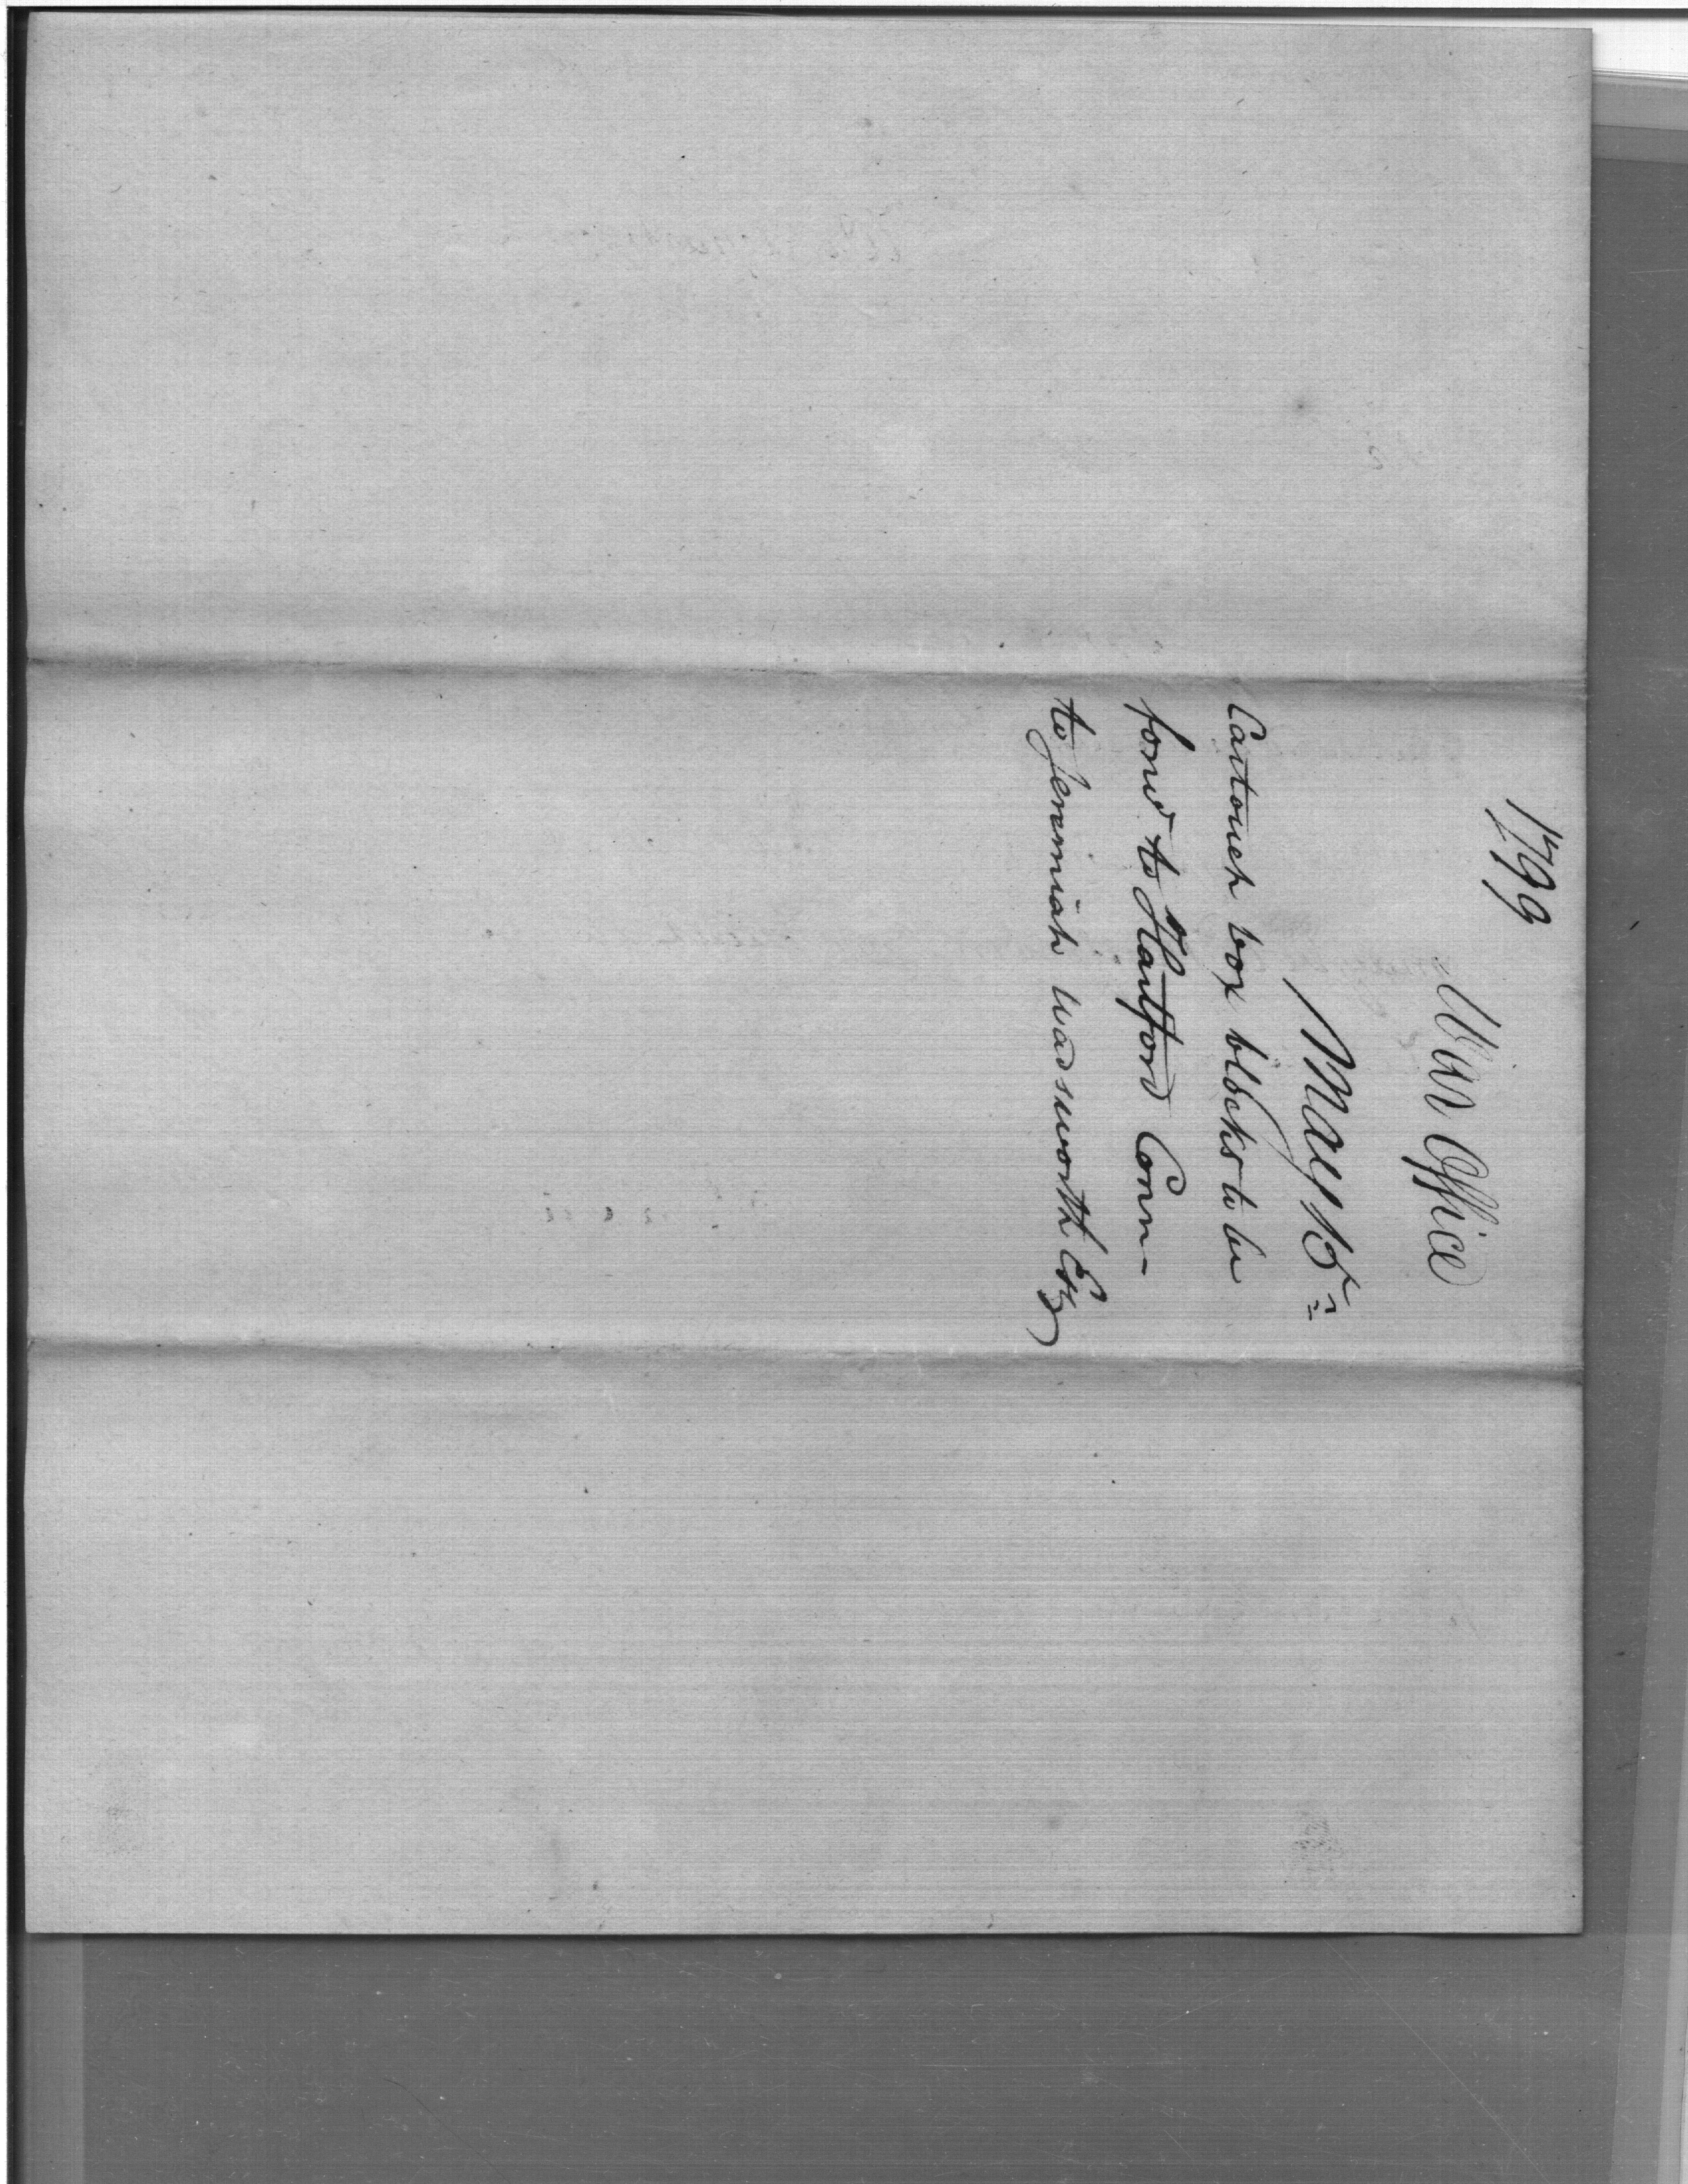 1799
War Office
May 16th
Cartouch box blocks to be
forwd. to Hartford Conn—
to Jeremiah Wadsworth Esq